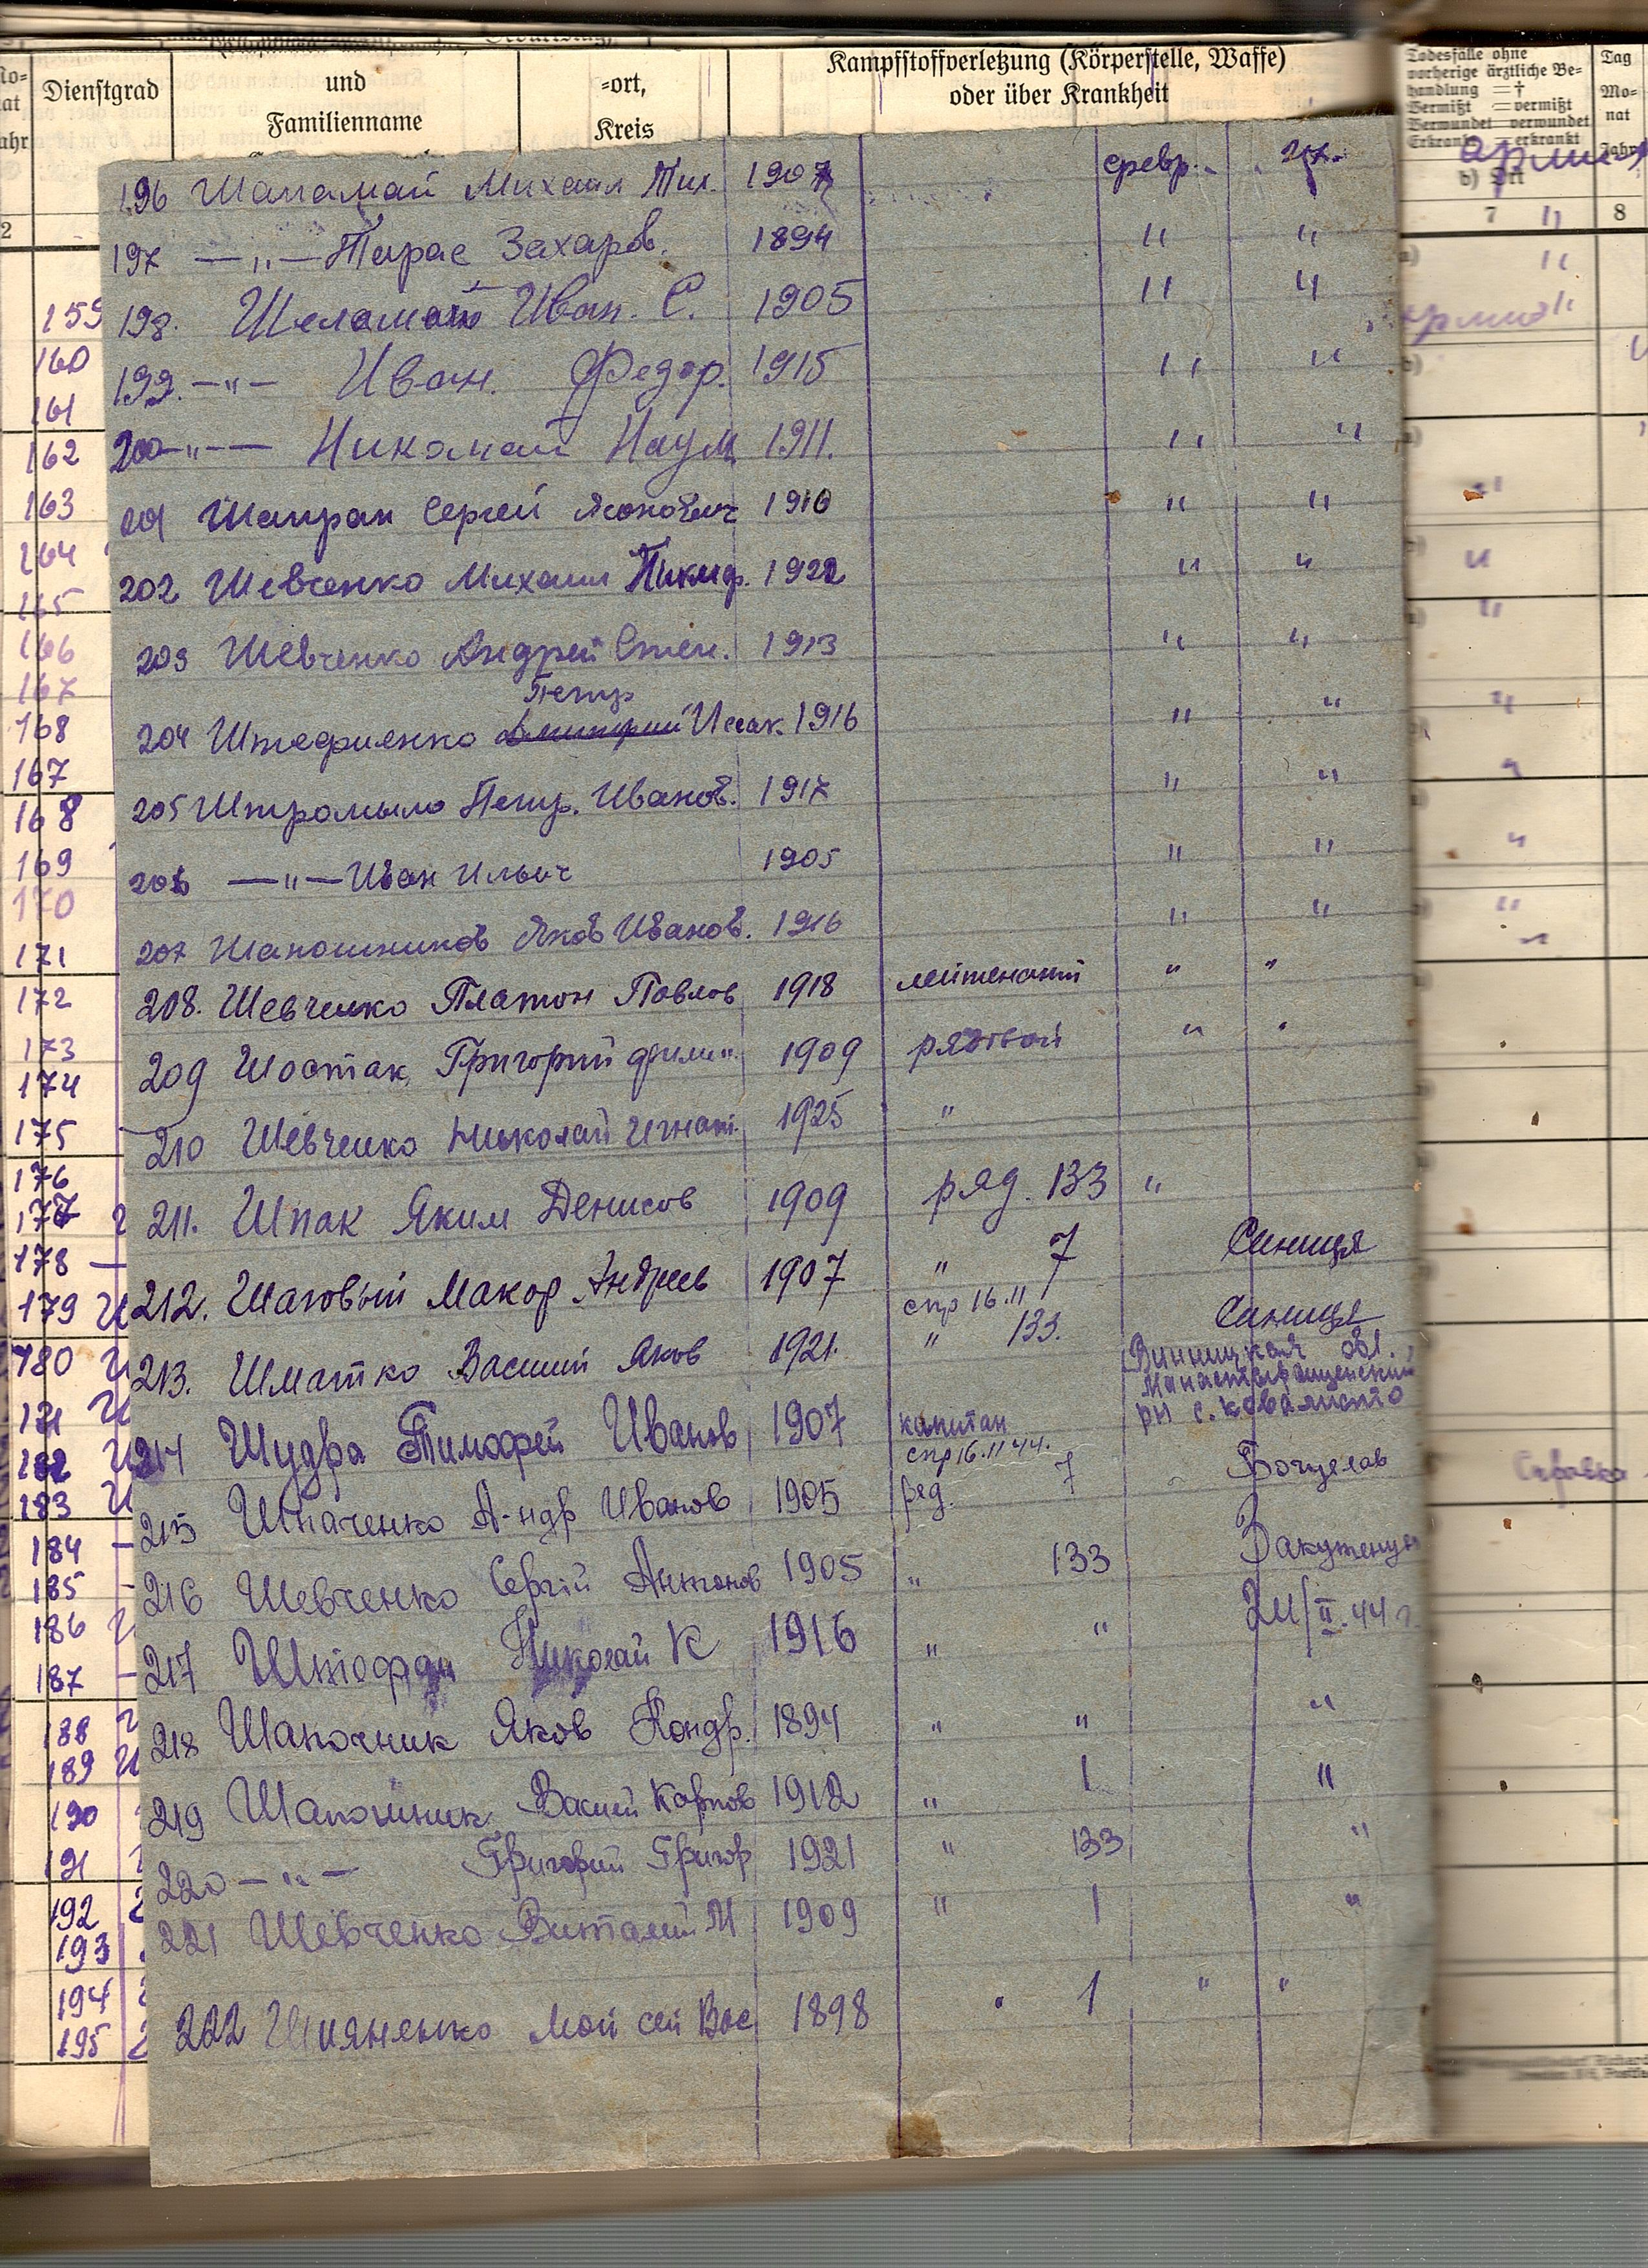 Dienstgrad
und
Familienname
=ort,
Kreis
Kampfstoffverletzung (Körperstelle, Waffe)
oder über Krankheit
Todesfälle ohne
vorherige ärztliche Be=
handlung = †
Vermißt = vermißt
Verwundet = verwundet
Erkrankt = erkrankt
b) Ort
7
Tag
Mo=
nat
Jahr
8
196 Шаламай Михаил Тих. 1907 февр.
197 —"— Тарас Захаров. 1894 " "
198. Шеламай Иван. С. 1905 " "
199. —"— Иван. Федор. 1915 " "
200 —"— Николай Наум 1911. " "
201 Шапран Сергей 1910 " "
202 Шевченко Михаил 1922 " "
203 Шевченко Андрей Степ. 1913 " "
Петр
204 Штефиленко Исак. 1916 " "
205 Штромыло Петр. Иванов. 1917 " "
206 —"— Иван Ильич 1905 " "
207 Шапошников Яков Иванов. 1916 " "
208. Шевченко Платон Павлов 1918 лейтенант " "
209 Шостак Григорий 1909 рядовой " "
210 Шевченко Николай Игнат. 1925 "
211. Шпак Яким Денисов 1909 ряд. 133 "
212. Шаговый Макар Андреев 1907 " 7 Синиця
спр 16.11
213. Шматко Василий Яков 1921. " 133. Синиця
Винницкая обл.,
Манастырищенский
рн с.
214 Шудра Тимофей Иванов 1907 капитан
спр 16.11 44.
215 Шпаченко А-ндр Иванов 1905 ряд. 7
216 Шевченко Сергій Антонов 1905 " 133
217 Николай К 1916 " " 24/II.44 г.
218 Шапочник Яков Кондр. 1894 " " "
219 Шапошник Василий Карпов 1912 " 1 "
220 —"— Григорий Григор 1921 " 133 "
221 Шевченко Виталий М 1909 " 1 "
222 Шияненко Мойсей Вас 1898 " 1 " "
159
160
161
162
163
164
165
166
167
168
167
168
169
170
171
172
173
174
175
176
177
178
179
180
181
182
183
184
185
186
187
188
189
190
191
192
193
194
195
Справка